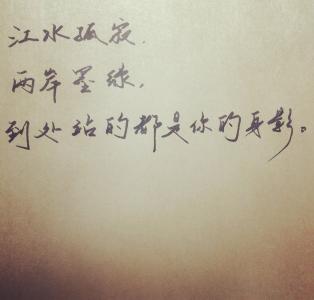 江水孤寂.
两岸墨绿,
到处站的都是你的身影。